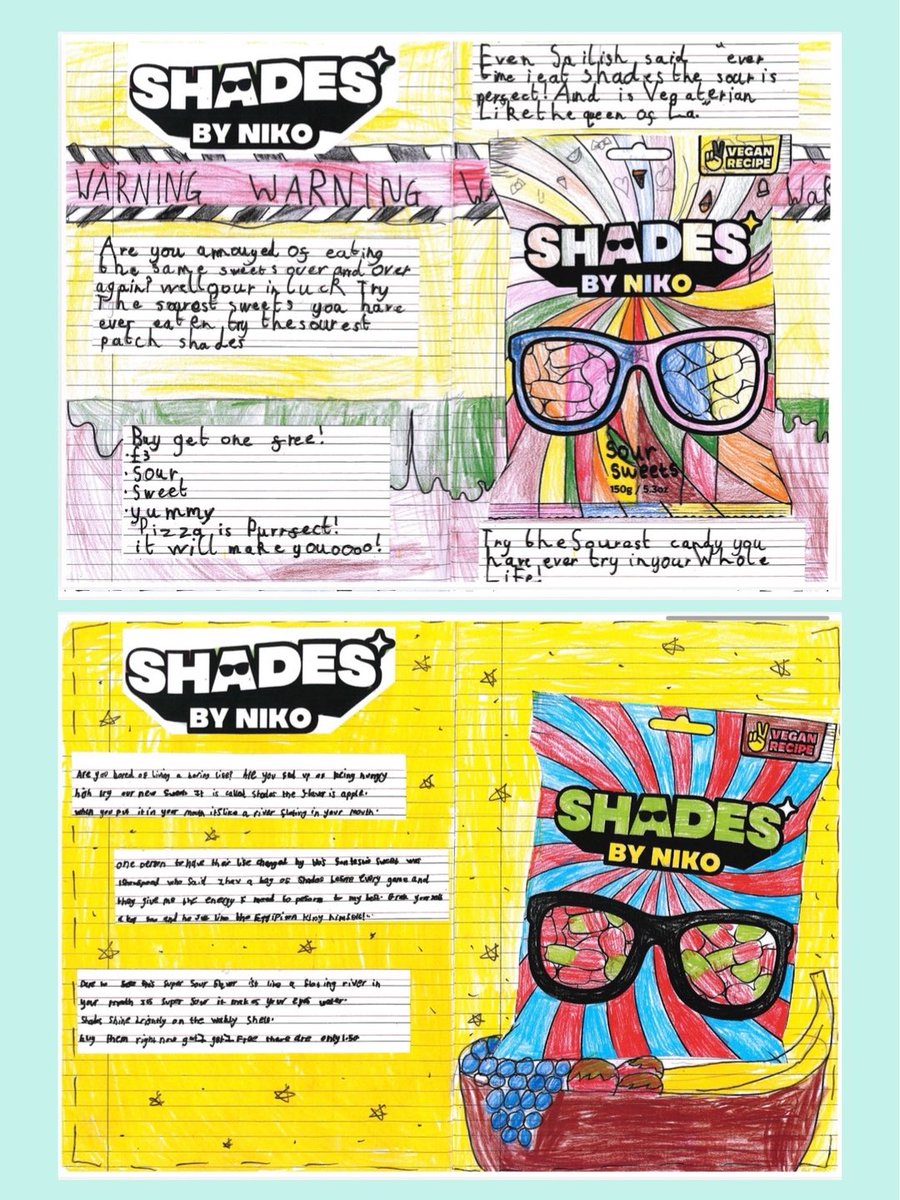 SHADES
BY NIKO
WARNING WARNING
Are you annoyed of eating
the same sweets over and over
again? well your in luck Try
The sourest sweets you have
ever eaten try the sourest
patch shades
Buy get one free!
·£3
·Sour
·Sweet
·yummy
Pizza is Purrfect!
it will make you oooo!
Even said "ever
time i eat Shades the sour is
perfect! And is Vegaterian
Like the queen of La."
VEGAN
RECIPE
SHADES
BY NIKO
Sour
Sweets
150g / 5.3oz
Try the Sourast candy you
have ever try in your Whole
Life!
SHADES
BY NIKO
Are you bored of living a boring life? Are you fed up of being hungry
try our new Sweets It is called Shades the flavor is apple.
when you put it in your mouth its like a river floting in your mouth.
one person to have their life changed by this fantastic sweet was
who said I hav a bag of Shades before every game and
they give me the energy I need to peform to my best. Grab your
a bag now and be Just like the King himself!
this Super Sour flavor it like a floting river in
your mouth its Super Sour it makes your eyes water.
Shades Shine brightly on the Shelf.
Buy them right now get free there are only 1.50
VEGAN
RECIPE
SHADES
BY NIKO